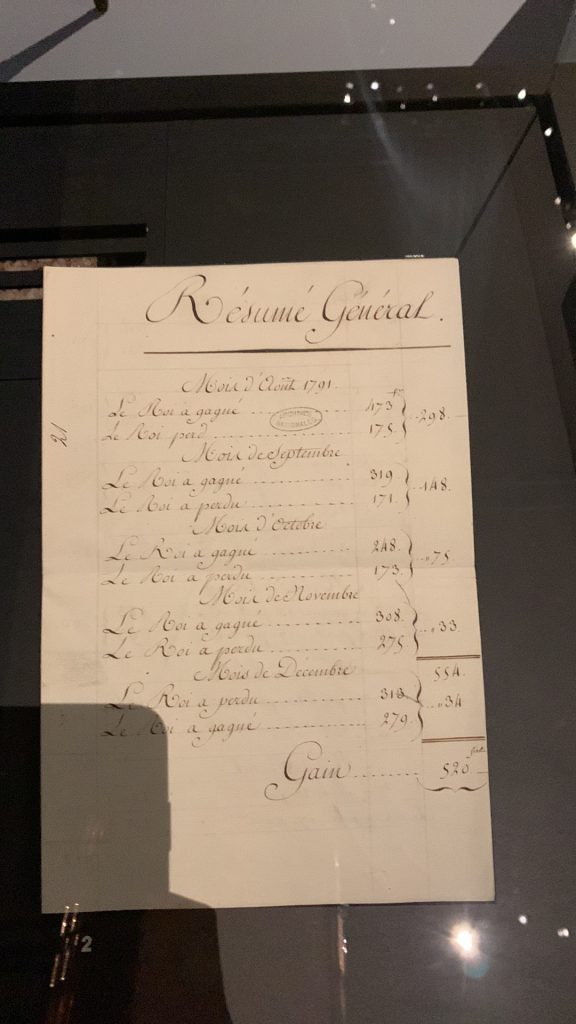 Résumé Général.
Mois d'Août 1791.
Le Roi a gagné ........ 473 .. 298.
ARCHIVES NATIONALES
Le Roi perd ........ 175.
Mois de Septembre
Le Roi a gagné ........ 319 .. 148.
Le Roi a perdu ........ 171.
Mois d'Octobre
Le Roi a gagné ........ 248. .. " 75.
Le Roi a perdu ........ 173.
Mois de Novembre
Le Roi a gagné ........ 308. .. " 33.
Le Roi a perdu ........ 275
554.
Mois de Décembre
Le Roi a perdu ........ 313 .. " 34
Le Roi a gagné ........ 279.
Gain ........ 520
21
2